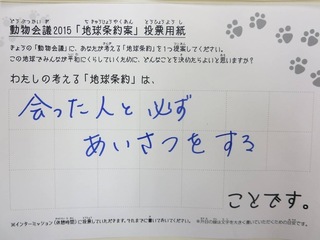 動物会議2015「地球条約案」投票用紙
きょうの「動物会議」に、あなたが考える「地球条約」を1つ提案してください。
この地球でみんなが平和にくらしていくために、どんなことを決めたらよいと思いますか？
わたしの考える「地球条約」は、
会った人と必ず
あいさつをする
ことです。
※インターミッション（休憩時間）に投票していただきます。それまでに書いておいてください。